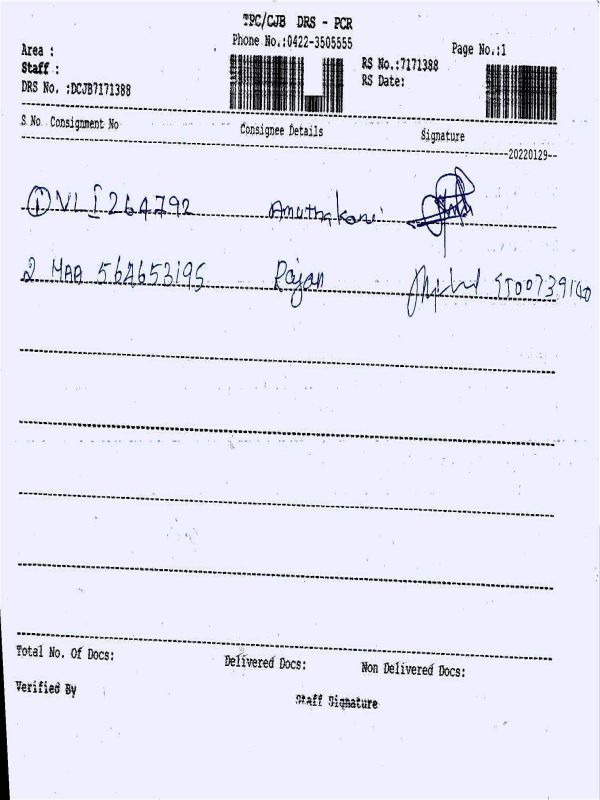 TPC/CJB DRS - PCR
Phone No.:0422-3505555
Page No.:1
Area :
Staff :
RS No.:7171388
RS Date:
DRS No. :DCJB7171388
S No Consignment No Consignee Details Signature
20220129--
1 VLI 264792 Amuthakani
2 MAA 564653195 Rajan 9500739140
Total No. Of Docs: Delivered Docs: Non Delivered Docs:
Verified By Staff Signature